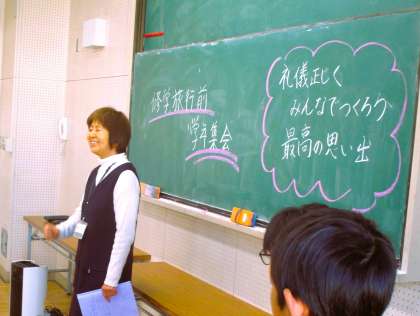 修学旅行前
学年集会
礼儀正しく
みんなでつくろう
最高の思い出